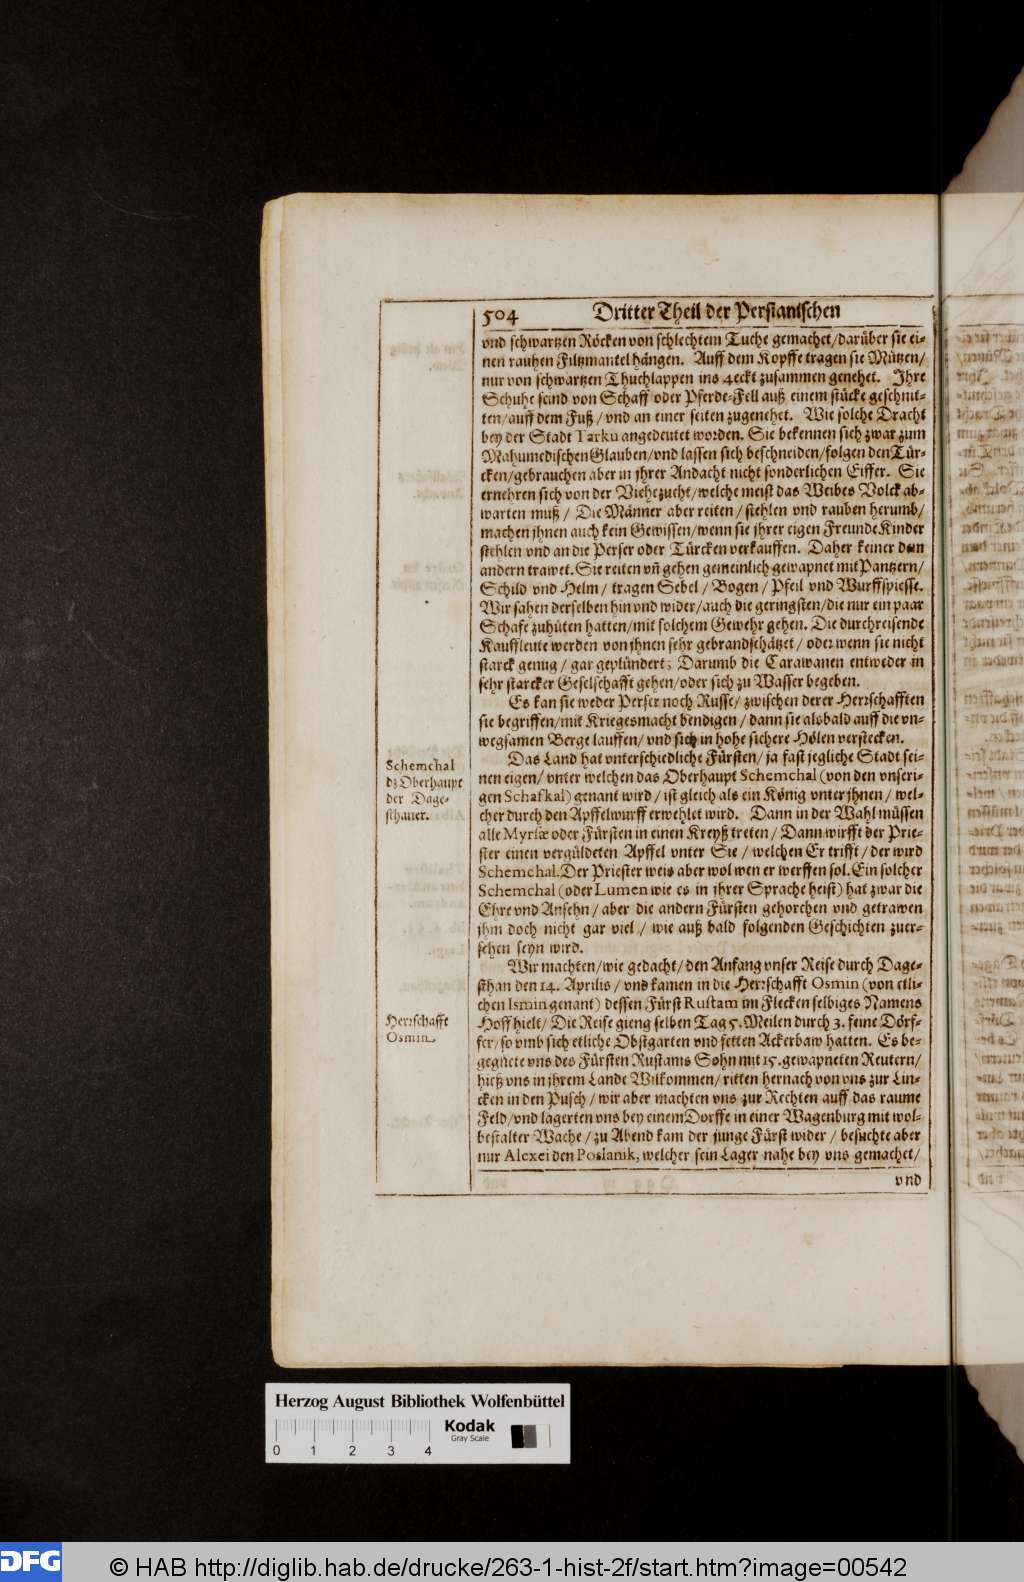 504 Dritter Theil der Persianischen
vnd schwartzen Röcken von schlechtem Tuche gemachet/darüber sie ei-
nen rauhen Filtzmantel hängen. Auff dem Kopffe tragen sie Mützen/
nur von schwartzen Thuchlappen ins 4eckt zusammen genehet. Ihre
Schuhe seind von Schaff oder Pferde-Fell auß einem stücke geschnit-
ten/auff dem Fuß/vnd an einer seiten zugenehet. Wie solche Tracht
bey der Stadt Tarku angedeutet worden. Sie bekennen sich zwar zum
Mahumedischen Glauben/vnd lassen sich beschneiden/folgen den Tür-
cken/gebrauchen aber in jhrer Andacht nicht sonderlichen Eiffer. Sie
ernehren sich von der Viehezucht/welche meist das Weibes Volck ab-
warten muß/ Die Männer aber reiten/stehlen vnd rauben herumb/
machen jhnen auch kein Gewissen/wenn sie jhrer eigen Freunde Kinder
stehlen vnd an die Perser oder Türcken verkauffen. Daher keiner dem
andern trawet. Sie reiten vñ gehen gemeinlich gewapnet mit Pantzern/
Schild vnd Helm/ tragen Sebel/ Bogen/ Pfeil vnd Wurffspiesse.
Wir sahen derselben hin vnd wider/auch die geringsten/die nur ein paar
Schafe zuhüten hatten/mit solchem Gewehr gehen. Die durchreisende
Kauffleute werden von jhnen sehr gebrandschätzet/ oder wenn sie nicht
starck genug/ gar geplündert; Darumb die Carawanen entweder in
sehr starcker Geselschafft gehen/oder sich zu Wasser begeben.
Es kan sie weder Perser noch Russe/ zwischen derer Herrschafften
sie begriffen/mit Kriegesmacht bendigen/ dann sie alsbald auff die vn-
wegsamen Berge lauffen/ vnd sich in hohe sichere Hölen verstecken.
Das Land hat vnterschiedliche Fürsten/ ja fast jegliche Stadt sei-
nen eigen/ vnter welchen das Oberhaupt Schemchal (von den vnseri-
gen Schafkal) genant wird/ ist gleich als ein König vnter jhnen/ wel-
cher durch den Apffelwurff erwehlet wird. Dann in der Wahl müssen
alle Myrsæ oder Fürsten in einen Kreyß treten/ Dann wirfft der Prie-
ster einen vergüldeten Apffel vnter Sie/ welchen Er trifft/ der wird
Schemchal. Der Priester weis aber wol wen er werffen sol. Ein solcher
Schemchal (oder Lumen wie es in jhrer Sprache heist) hat zwar die
Ehre vnd Ansehn/ aber die andern Fürsten gehorchen vnd getrawen
jhm doch nicht gar viel/ wie auß bald folgenden Geschichten zuer-
sehen seyn wird.
Schemchal
dz Oberhaupt
der Dage-
sthaner.
Wir machten/wie gedacht/den Anfang vnser Reise durch Dage-
sthan den 14. Aprilis/ vnd kamen in die Herrschafft Osmin (von etli-
chen Ismin genant) dessen Fürst Rustam im Flecken selbiges Namens
Hoff hielt/ Die Reise gieng selben Tag 5. Meilen durch 3. feine Dörf-
fer/so vmb sich etliche Obstgarten vnd fetten Ackerbaw hatten. Es be-
gegnete vns des Fürsten Rustams Sohn mit 15. gewapneten Reutern/
hieß vns in jhrem Lande Wilkommen/ ritten hernach von vns zur Lin-
cken in den Pusch/ wir aber machten vns zur Rechten auff das raume
Feld/vnd lagerten vns bey einem Dorffe in einer Wagenburg mit wol-
bestalter Wache/ zu Abend kam der junge Fürst wider/ besuchte aber
nur Alexei den Poslanik, welcher sein Lager nahe bey vns gemachet/
Herrschafft
Osmin
vnd
Herzog August Bibliothek Wolfenbüttel
0 1 2 3 4
Kodak
Gray Scale
DFG
© HAB http://diglib.hab.de/drucke/263-1-hist-2f/start.htm?image=00542